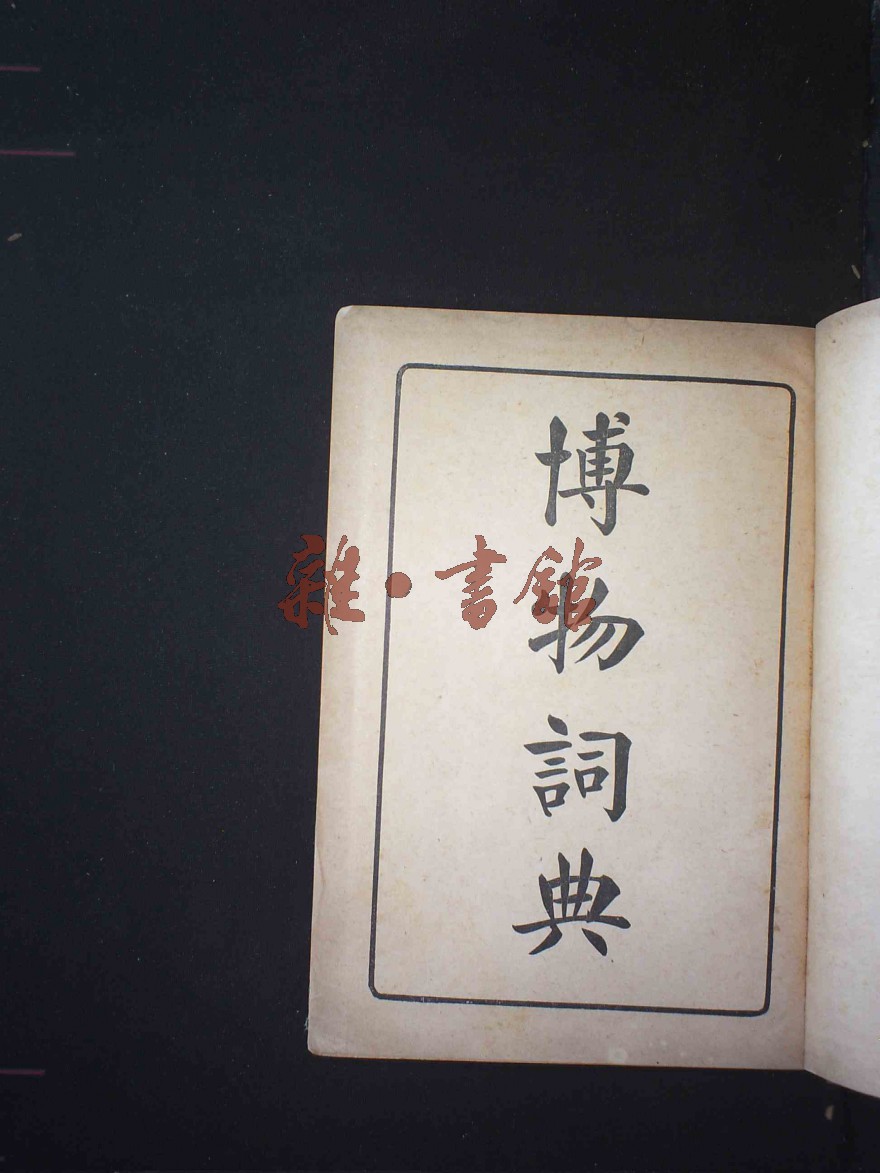 博物詞典
雜·書館